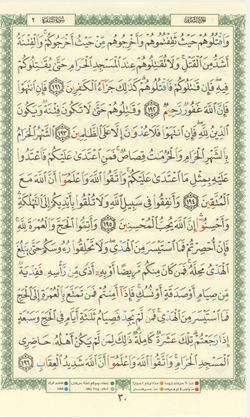 الجزء الثاني سورة البقرة ٢
وَٱقۡتُلُوهُمۡ حَيۡثُ ثَقِفۡتُمُوهُمۡ وَأَخۡرِجُوهُم مِّنۡ حَيۡثُ أَخۡرَجُوكُمۡۚ وَٱلۡفِتۡنَةُ
أَشَدُّ مِنَ ٱلۡقَتۡلِۚ وَلَا تُقَٰتِلُوهُمۡ عِندَ ٱلۡمَسۡجِدِ ٱلۡحَرَامِ حَتَّىٰ يُقَٰتِلُوكُمۡ
فِيهِۖ فَإِن قَٰتَلُوكُمۡ فَٱقۡتُلُوهُمۡۗ كَذَٰلِكَ جَزَآءُ ٱلۡكَٰفِرِينَ ١٩١ فَإِنِ ٱنتَهَوۡاْ
فَإِنَّ ٱللَّهَ غَفُورٞ رَّحِيمٞ ١٩٢ وَقَٰتِلُوهُمۡ حَتَّىٰ لَا تَكُونَ فِتۡنَةٞ وَيَكُونَ
ٱلدِّينُ لِلَّهِۖ فَإِنِ ٱنتَهَوۡاْ فَلَا عُدۡوَٰنَ إِلَّا عَلَى ٱلظَّٰلِمِينَ ١٩٣ ٱلشَّهۡرُ ٱلۡحَرَامُ
بِٱلشَّهۡرِ ٱلۡحَرَامِ وَٱلۡحُرُمَٰتُ قِصَاصٞۚ فَمَنِ ٱعۡتَدَىٰ عَلَيۡكُمۡ فَٱعۡتَدُواْ
عَلَيۡهِ بِمِثۡلِ مَا ٱعۡتَدَىٰ عَلَيۡكُمۡۚ وَٱتَّقُواْ ٱللَّهَ وَٱعۡلَمُوٓاْ أَنَّ ٱللَّهَ مَعَ
ٱلۡمُتَّقِينَ ١٩٤ وَأَنفِقُواْ فِي سَبِيلِ ٱللَّهِ وَلَا تُلۡقُواْ بِأَيۡدِيكُمۡ إِلَى ٱلتَّهۡلُكَةِ
وَأَحۡسِنُوٓاْۚ إِنَّ ٱللَّهَ يُحِبُّ ٱلۡمُحۡسِنِينَ ١٩٥ وَأَتِمُّواْ ٱلۡحَجَّ وَٱلۡعُمۡرَةَ لِلَّهِۚ
فَإِنۡ أُحۡصِرۡتُمۡ فَمَا ٱسۡتَيۡسَرَ مِنَ ٱلۡهَدۡيِۖ وَلَا تَحۡلِقُواْ رُءُوسَكُمۡ حَتَّىٰ يَبۡلُغَ
ٱلۡهَدۡيُ مَحِلَّهُۥۚ فَمَن كَانَ مِنكُم مَّرِيضًا أَوۡ بِهِۦٓ أَذٗى مِّن رَّأۡسِهِۦ فَفِدۡيَةٞ
مِّن صِيَامٍ أَوۡ صَدَقَةٍ أَوۡ نُسُكٖۚ فَإِذَآ أَمِنتُمۡ فَمَن تَمَتَّعَ بِٱلۡعُمۡرَةِ إِلَى ٱلۡحَجِّ
فَمَا ٱسۡتَيۡسَرَ مِنَ ٱلۡهَدۡيِۚ فَمَن لَّمۡ يَجِدۡ فَصِيَامُ ثَلَٰثَةِ أَيَّامٖ فِي ٱلۡحَجِّ وَسَبۡعَةٍ
إِذَا رَجَعۡتُمۡۗ تِلۡكَ عَشَرَةٞ كَامِلَةٞۗ ذَٰلِكَ لِمَن لَّمۡ يَكُنۡ أَهۡلُهُۥ حَاضِرِي
ٱلۡمَسۡجِدِ ٱلۡحَرَامِۚ وَٱتَّقُواْ ٱللَّهَ وَٱعۡلَمُوٓاْ أَنَّ ٱللَّهَ شَدِيدُ ٱلۡعِقَابِ ١٩٦
٣٠